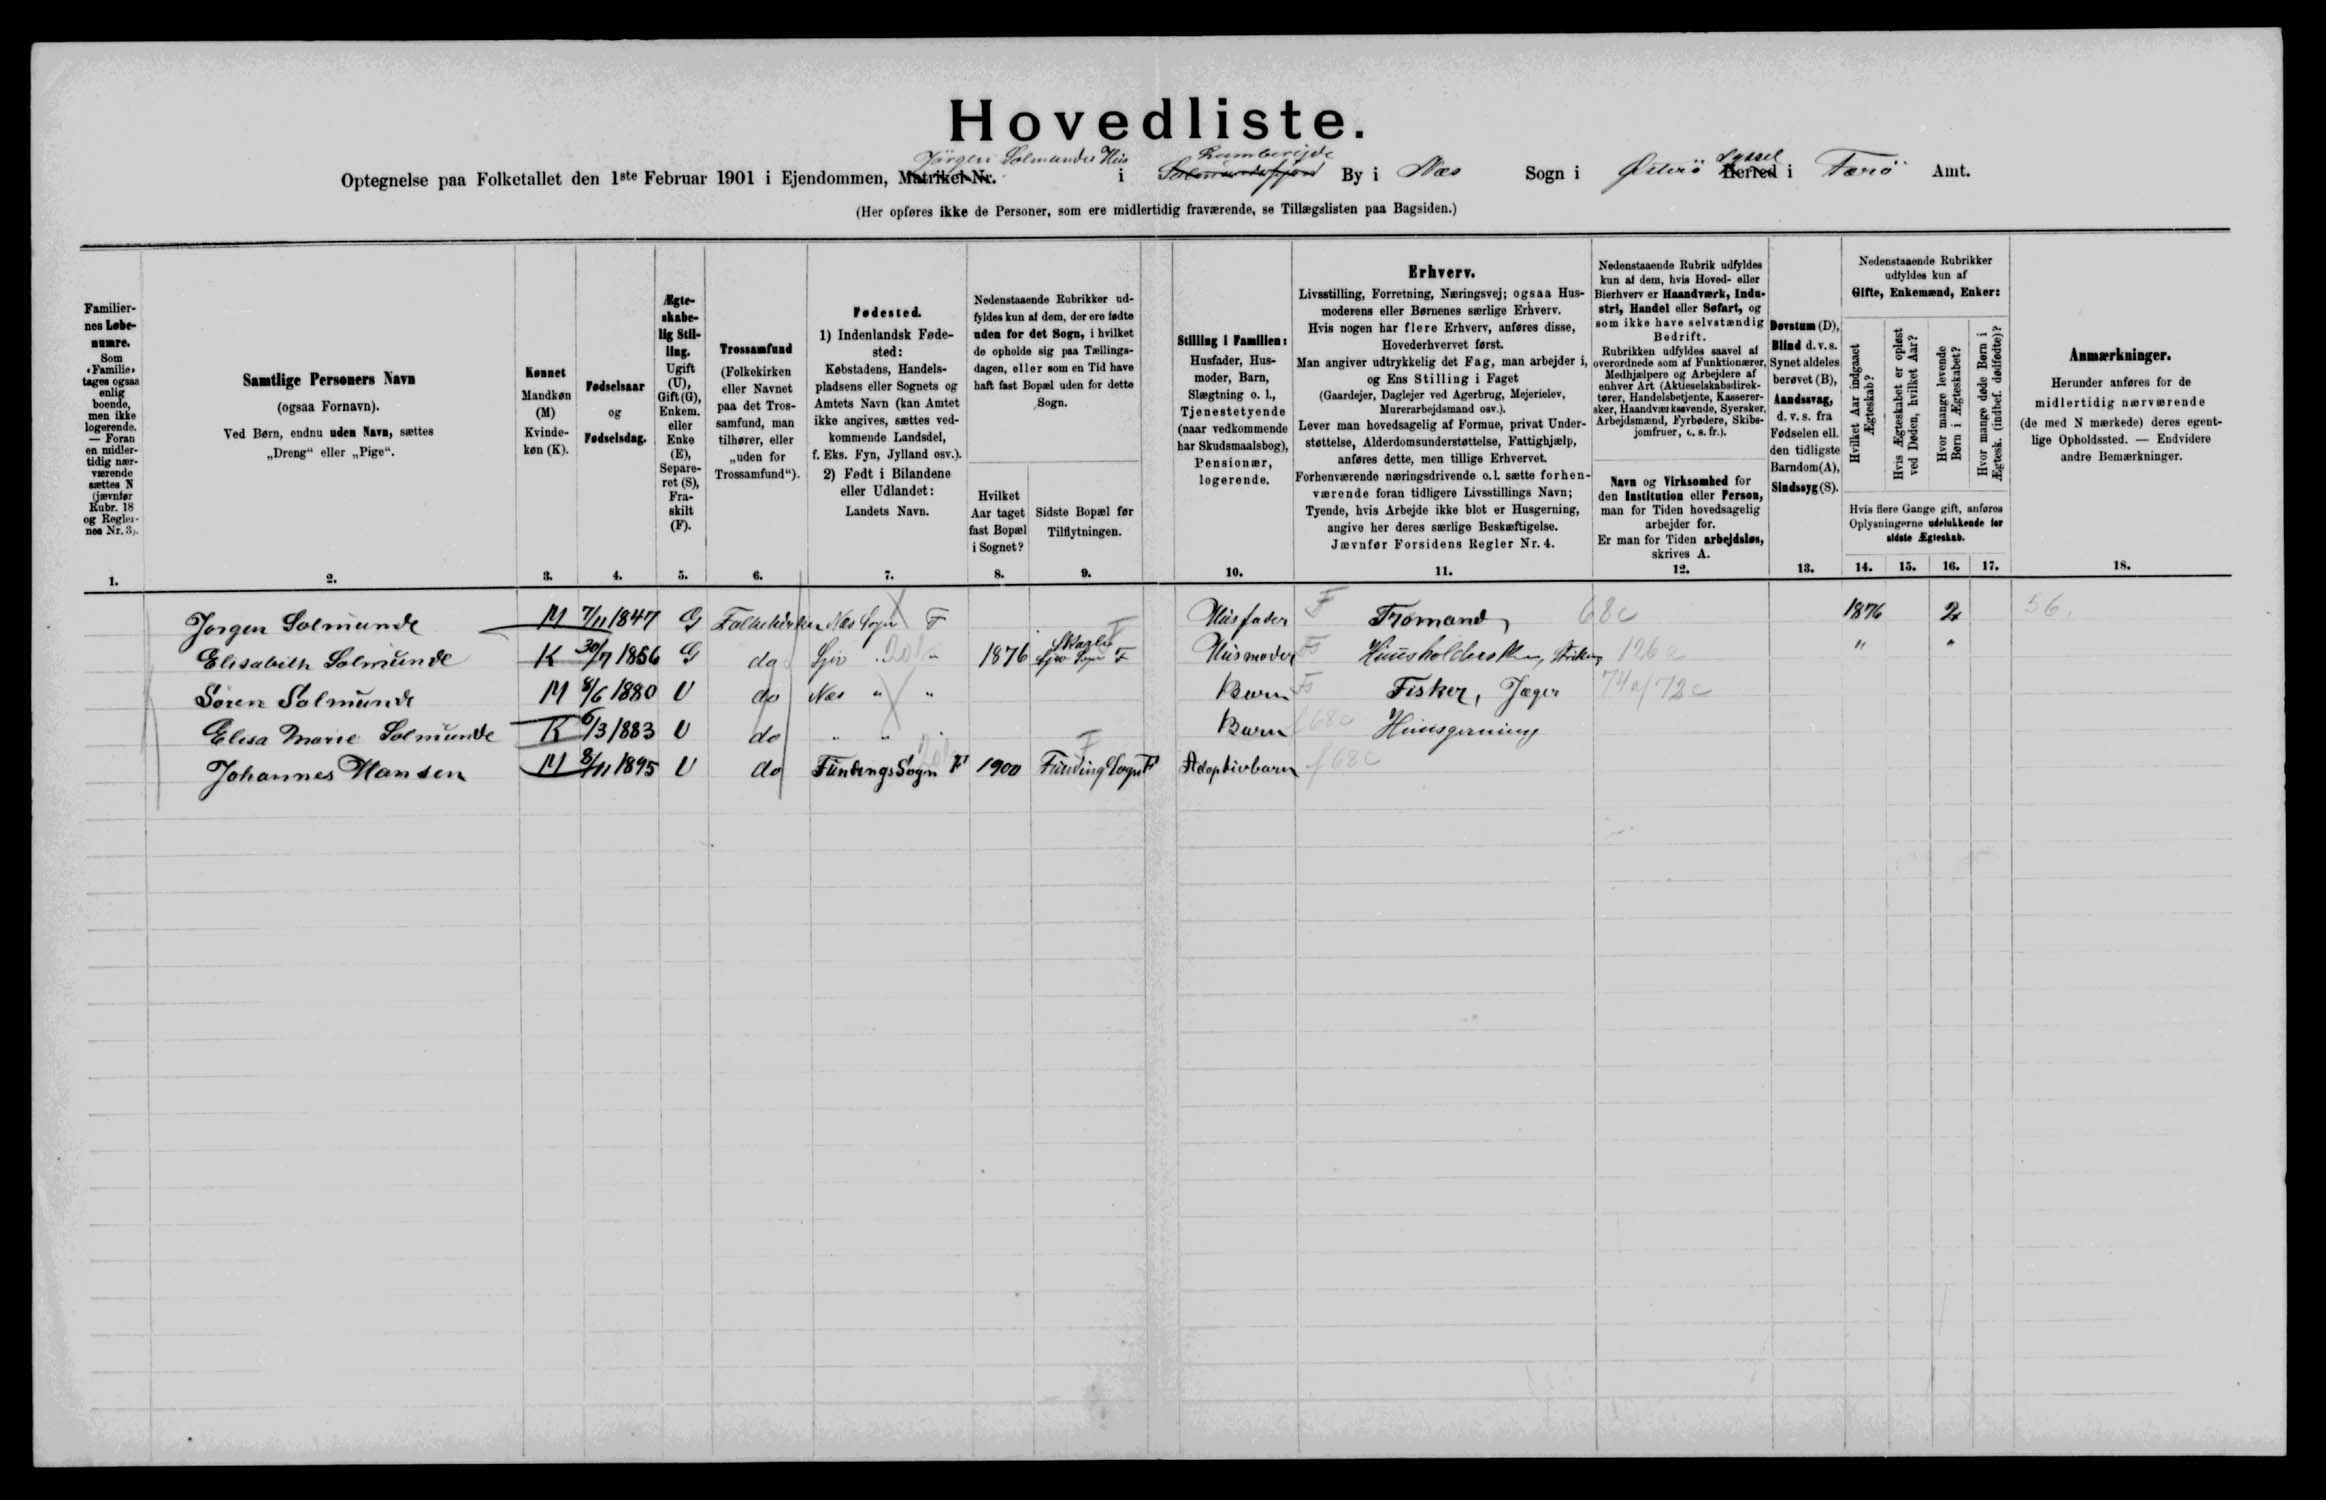 Hovedliste.
Optegnelse paa Folketallet den 1ste Februar 1901 i Ejendommen, Matrikel-Nr. Jörgen Solmundes Hus i By i Næs Sogn i Österö Herred Syssel i Færö Amt.
(Her opføres ikke de Personer, som ere midlertidig fraværende, se Tillægslisten paa Bagsiden.)
Familiernes Løbenumre.
Som «Familie» tages ogsaa enlig boende, men ikke logerende. — Foran en midlertidig nærværende sættes N (jævnfør Rubr. 18 og Reglernes Nr. 3).
1.
Samtlige Personers Navn
(ogsaa Fornavn).
Ved Børn, endnu uden Navn, sættes
„Dreng“ eller „Pige“.
2.
Kønnet
Mandkøn
(M)
Kvinde-
køn (K).
3.
Fødselsaar
og
Fødselsdag.
4.
Ægte-
skabe-
lig Stil-
ling.
Ugift
(U),
Gift (G),
Enkem.
eller
Enke
(E),
Separe-
ret (S),
Fra-
skilt
(F).
5.
Trossamfund
(Folkekirken
eller Navnet
paa det Tros-
samfund, man
tilhører, eller
„uden for
Trossamfund“).
6.
Fødested.
1) Indenlandsk Føde-
sted:
Købstadens, Handels-
pladsens eller Sognets og
Amtets Navn (kan Amtet
ikke angives, sættes ved-
kommende Landsdel,
f. Eks. Fyn, Jylland osv.).
2) Født i Bilandene
eller Udlandet:
Landets Navn.
7.
Nedenstaaende Rubrikker ud-
fyldes kun af dem, der ere fødte
uden for det Sogn, i hvilket
de opholde sig paa Tællings-
dagen, eller som en Tid have
haft fast Bopæl uden for dette
Sogn.
Hvilket
Aar taget
fast Bopæl
i Sognet?
8.
Sidste Bopæl før
Tilflytningen.
9.
Stilling i Familien:
Husfader, Hus-
moder, Barn,
Slægtning o. l.,
Tjenestetyende
(naar vedkommende
har Skudsmaalsbog),
Pensionær,
logerende.
10.
Erhverv.
Livsstilling, Forretning, Næringsvej; ogsaa Hus-
moderens eller Børnenes særlige Erhverv.
Hvis nogen har flere Erhverv, anføres disse,
Hovederhvervet først.
Man angiver udtrykkelig det Fag, man arbejder i,
og Ens Stilling i Faget
(Gaardejer, Daglejer ved Agerbrug, Mejerielev,
Murerarbejdsmand osv.).
Lever man hovedsagelig af Formue, privat Under-
støttelse, Alderdomsunderstøttelse, Fattighjælp,
anføres dette, men tillige Erhvervet.
Forhenværende næringsdrivende o. l. sætte forhen-
værende foran tidligere Livsstillings Navn;
Tyende, hvis Arbejde ikke blot er Husgerning,
angive her deres særlige Beskæftigelse.
Jævnfør Forsidens Regler Nr. 4.
11.
Nedenstaaende Rubrik udfyldes
kun af dem, hvis Hoved- eller
Bierhverv er Haandværk, Indu-
stri, Handel eller Søfart, og
som ikke have selvstændig
Bedrift.
Rubrikken udfyldes saavel af
overordnede som af Funktionærer,
Medhjælpere og Arbejdere af
enhver Art (Aktieselskabsdirek-
tører, Handelsbetjente, Kasserer-
sker, Haandværkssvende, Syersker,
Arbejdsmænd, Fyrbødere, Skibs-
jomfruer, o. s. fr.).
Navn og Virksomhed for
den Institution eller Person,
man for Tiden hovedsagelig
arbejder for.
Er man for Tiden arbejdsløs,
skrives A.
12.
Døvstum (D),
Blind d. v. s.
Synet aldeles
berøvet (B),
Aandssvag,
d. v. s. fra
Fødselen ell.
den tidligste
Barndom (A),
Sindssyg (S).
13.
Nedenstaaende Rubrikker
udfyldes kun af
Gifte, Enkemænd, Enker:
Hvilket Aar indgaaet Ægteskab?
Hvis Ægteskabet er opløst ved Døden, hvilket Aar?
Hvor mange levende Børn i Ægteskabet?
Hvor mange døde Børn i Ægtesk. (indbef. dødfødte)?
Hvis flere Gange gift, anføres
Oplysningerne udelukkende for
sidste Ægteskab.
14. 15. 16. 17.
Anmærkninger.
Herunder anføres for de
midlertidig nærværende
(de med N mærkede) deres egent-
lige Opholdssted. — Endvidere
andre Bemærkninger.
18.
Jørgen Solmunde M 7/11 1847 G Folkekirken Næs Sogn F Husfader F Tromand 68c 1876 2 56.
Elisabeth Solmunde K 30/7 1856 G do Sjov " " 1876 Sjov Sogn F Husmoder 126a " "
Søren Solmunde M 8/6 1880 U do Næs " " Barn Fisker, Jæger 74a/72c
Elisa Marie Solmunde K 6/3 1883 U do " " Barn f 68c Huusgerning
Johannes Hansen M 8/11 1895 U do Fundings Sogn F 1900 Funding Sogn F Adoptivbarn f 68c